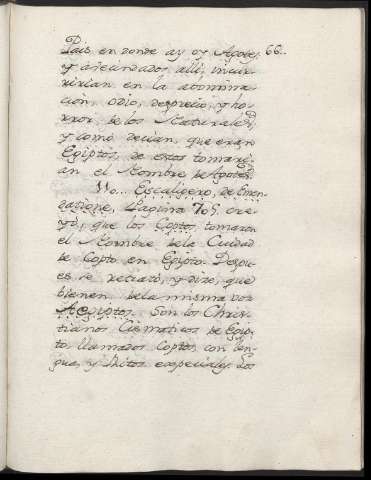 Pais en donde ay oy Agotes, 66.
y avecindados alli, incur-
ririan en la abomina-
cion, odio, desprecio, y ho-
rror de los Naturales,
y como decian, que eran
Egiptos, de estos tomari-
an el Nombre de Agotes.
No... Escaligero, de Emen-
datione, Pagina 705. cre-
yo, que los Coptos, tomaron
el Nombre de la Ciudad
de Copto en Egipto. Despu-
es se retrató, y dize, que
bienen de la misma voz
Aegiptos. Son los Chris-
tianos Cismaticos de Egip-
to, llamados Coptos, con len-
gua, y Ritos especiales. Los